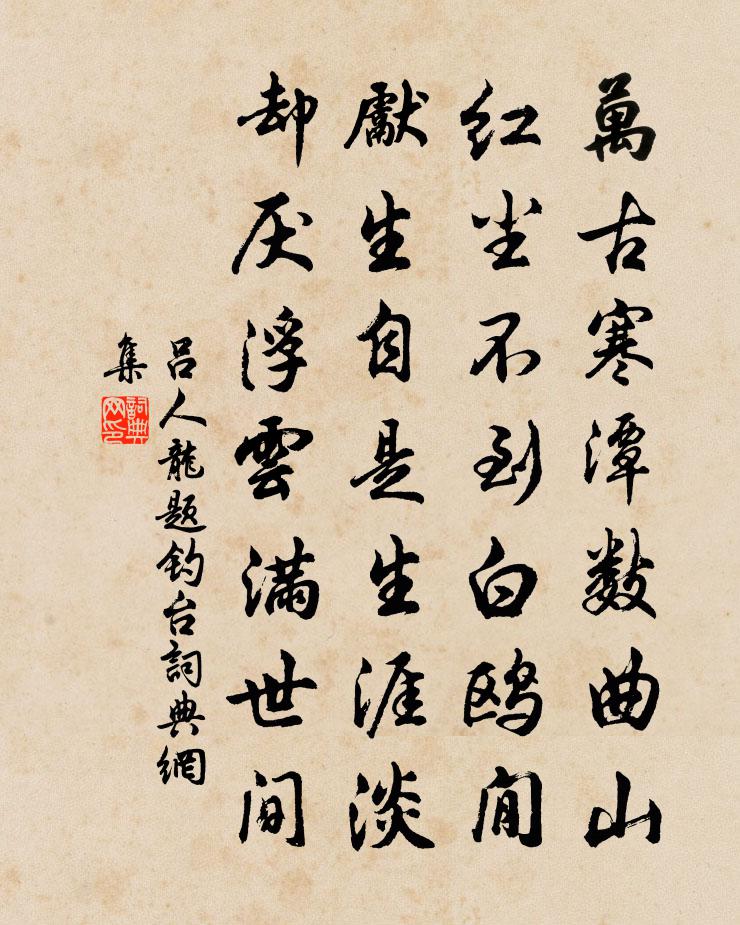 萬古寒潭數曲山
紅尘不到白鸥閒
獻生自是生涯淡
却厌浮雲满世間
吕人龍题钓台詞典網
集
詞典网印